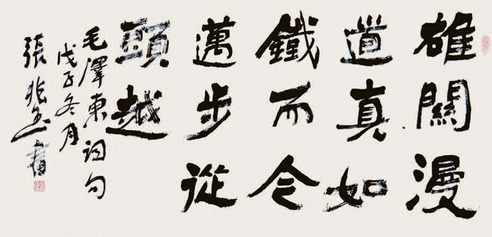 雄關漫
道真如
鐵而今
邁步從
頭越
毛澤東词句
戊子冬月
張